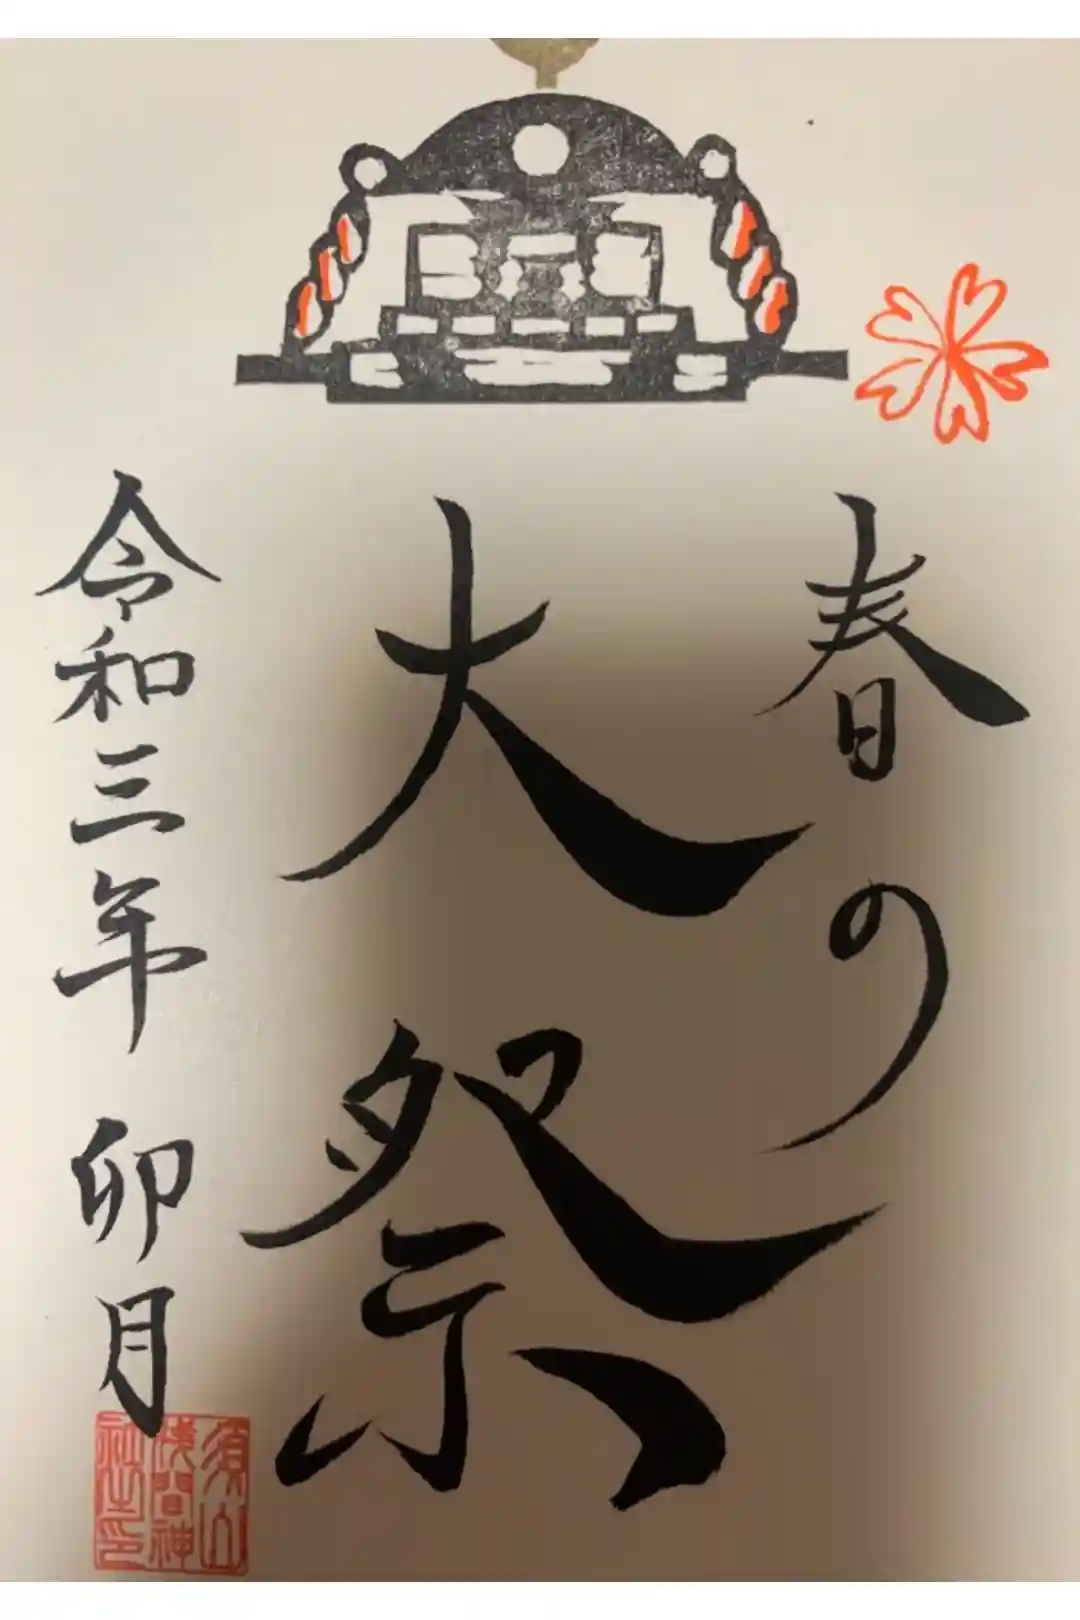 春の
大祭
令和三年 卯月
須山
浅間神
社之印